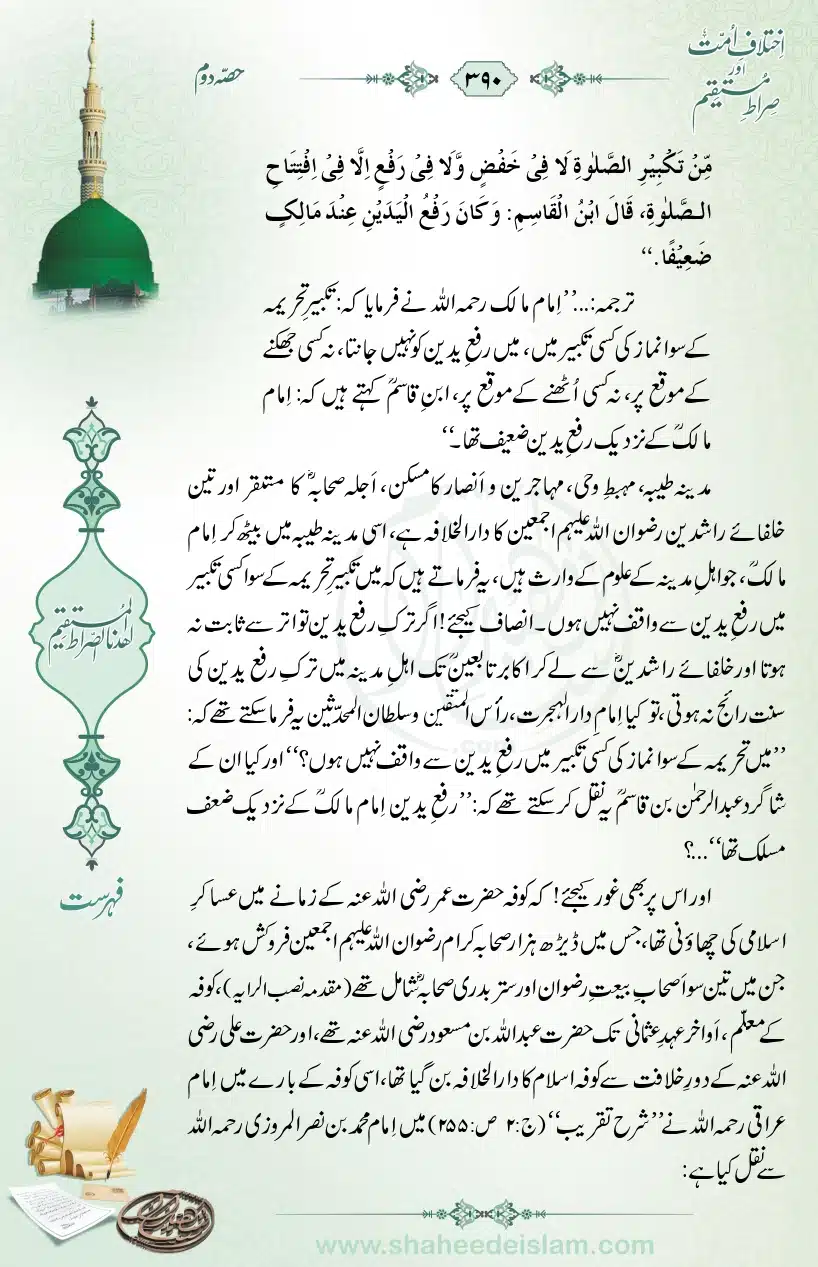 اِختلافِ اُمّت
اور
صِراطِ مُستقیم
۳۹۰
حصّہ دوم
مِّنْ تَکْبِیْرِ الصَّلٰوۃِ لَا فِیْ خَفْضٍ وَّلَا فِیْ رَفْعٍ اِلَّا فِیْ اِفْتِتَاحِ
الصَّلٰوۃِ، قَالَ ابْنُ الْقَاسِمِ: وَکَانَ رَفْعُ الْیَدَیْنِ عِنْدَ مَالِکٍ
ضَعِیْفًا.‘‘
ترجمہ:...’’اِمام مالک رحمہ اللہ نے فرمایا کہ: تکبیرِ تحریمہ
کے سوا نماز کی کسی تکبیر میں، میں رفعِ یدین کو نہیں جانتا، نہ کسی جھکنے
کے موقع پر، نہ کسی اُٹھنے کے موقع پر، ابنِ قاسمؒ کہتے ہیں کہ: اِمام
مالکؒ کے نزدیک رفعِ یدین ضعیف تھا۔‘‘
مدینہ طیبہ، مہبطِ وحی، مہاجرین و اَنصار کا مسکن، اَجلہ صحابہؓ کا مستقر اور تین
خلفائے راشدین رضوان اللہ علیہم اجمعین کا دارالخلافہ ہے، اسی مدینہ طیبہ میں بیٹھ کر اِمام
مالکؒ، جو اہلِ مدینہ کے علوم کے وارث ہیں، یہ فرماتے ہیں کہ میں تکبیرِ تحریمہ کے سوا کسی تکبیر
میں رفعِ یدین سے واقف نہیں ہوں۔ انصاف کیجئے! اگر ترکِ رفعِ یدین تواتر سے ثابت نہ
ہوتا اور خلفائے راشدینؓ سے لے کر اکابر تابعینؒ تک اہلِ مدینہ میں ترکِ رفع یدین کی
سنت رائج نہ ہوتی، تو کیا اِمامِ دارالہجرت، رأس المتقین و سلطان المحدّثین یہ فرماسکتے تھے کہ:
’’میں تحریمہ کے سوا نماز کی کسی تکبیر میں رفعِ یدین سے واقف نہیں ہوں؟‘‘ اور کیا ان کے
شاگرد عبدالرحمٰن بن قاسمؒ یہ نقل کرسکتے تھے کہ: ’’رفعِ یدین اِمام مالکؒ کے نزدیک ضعف
مسلک تھا‘‘...؟
اور اس پر بھی غور کیجئے! کہ کوفہ حضرت عمر رضی اللہ عنہ کے زمانے میں عساکرِ
اسلامی کی چھاؤنی تھا، جس میں ڈیڑھ ہزار صحابہ کرام رضوان اللہ علیہم اجمعین فروکش ہوئے،
جن میں تین سو اَصحابِ بیعتِ رِضوان اور ستر بدری صحابہؓ شامل تھے (مقدمہ نصب الرایہ)، کوفہ
کے معلّم، اَواخر عہدِ عثمانی تک حضرت عبداللہ بن مسعود رضی اللہ عنہ تھے، اور حضرت علی رضی
اللہ عنہ کے دورِ خلافت سے کوفہ اسلام کا دارالخلافہ بن گیا تھا، اسی کوفہ کے بارے میں اِمام
عراقی رحمہ اللہ نے ’’شرح تقریب‘‘ (ج:۲ ص:۲۵۵) میں اِمام محمد بن نصر المروزی رحمہ اللہ
سے نقل کیا ہے:
اھدنا الصراط المستقیم
فہرست
www.shaheedeislam.com